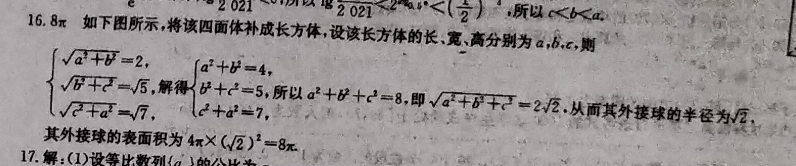 2 021 2 021 ,所以 c<b<a.
16. 8π 如下图所示,将该四面体补成长方体,设该长方体的长、宽、高分别为 a,b,c,则
{√(a²+b²)=2, √(b²+c²)=√5, √(c²+a²)=√7, 解得 {a²+b²=4, b²+c²=5, c²+a²=7, 所以 a²+b²+c²=8,即 √(a²+b²+c²)=2√2,从而其外接球的半径为√2,
其外接球的表面积为 4π×(√2)²=8π.
17. 解:(1)设等比数列{a }的公比为